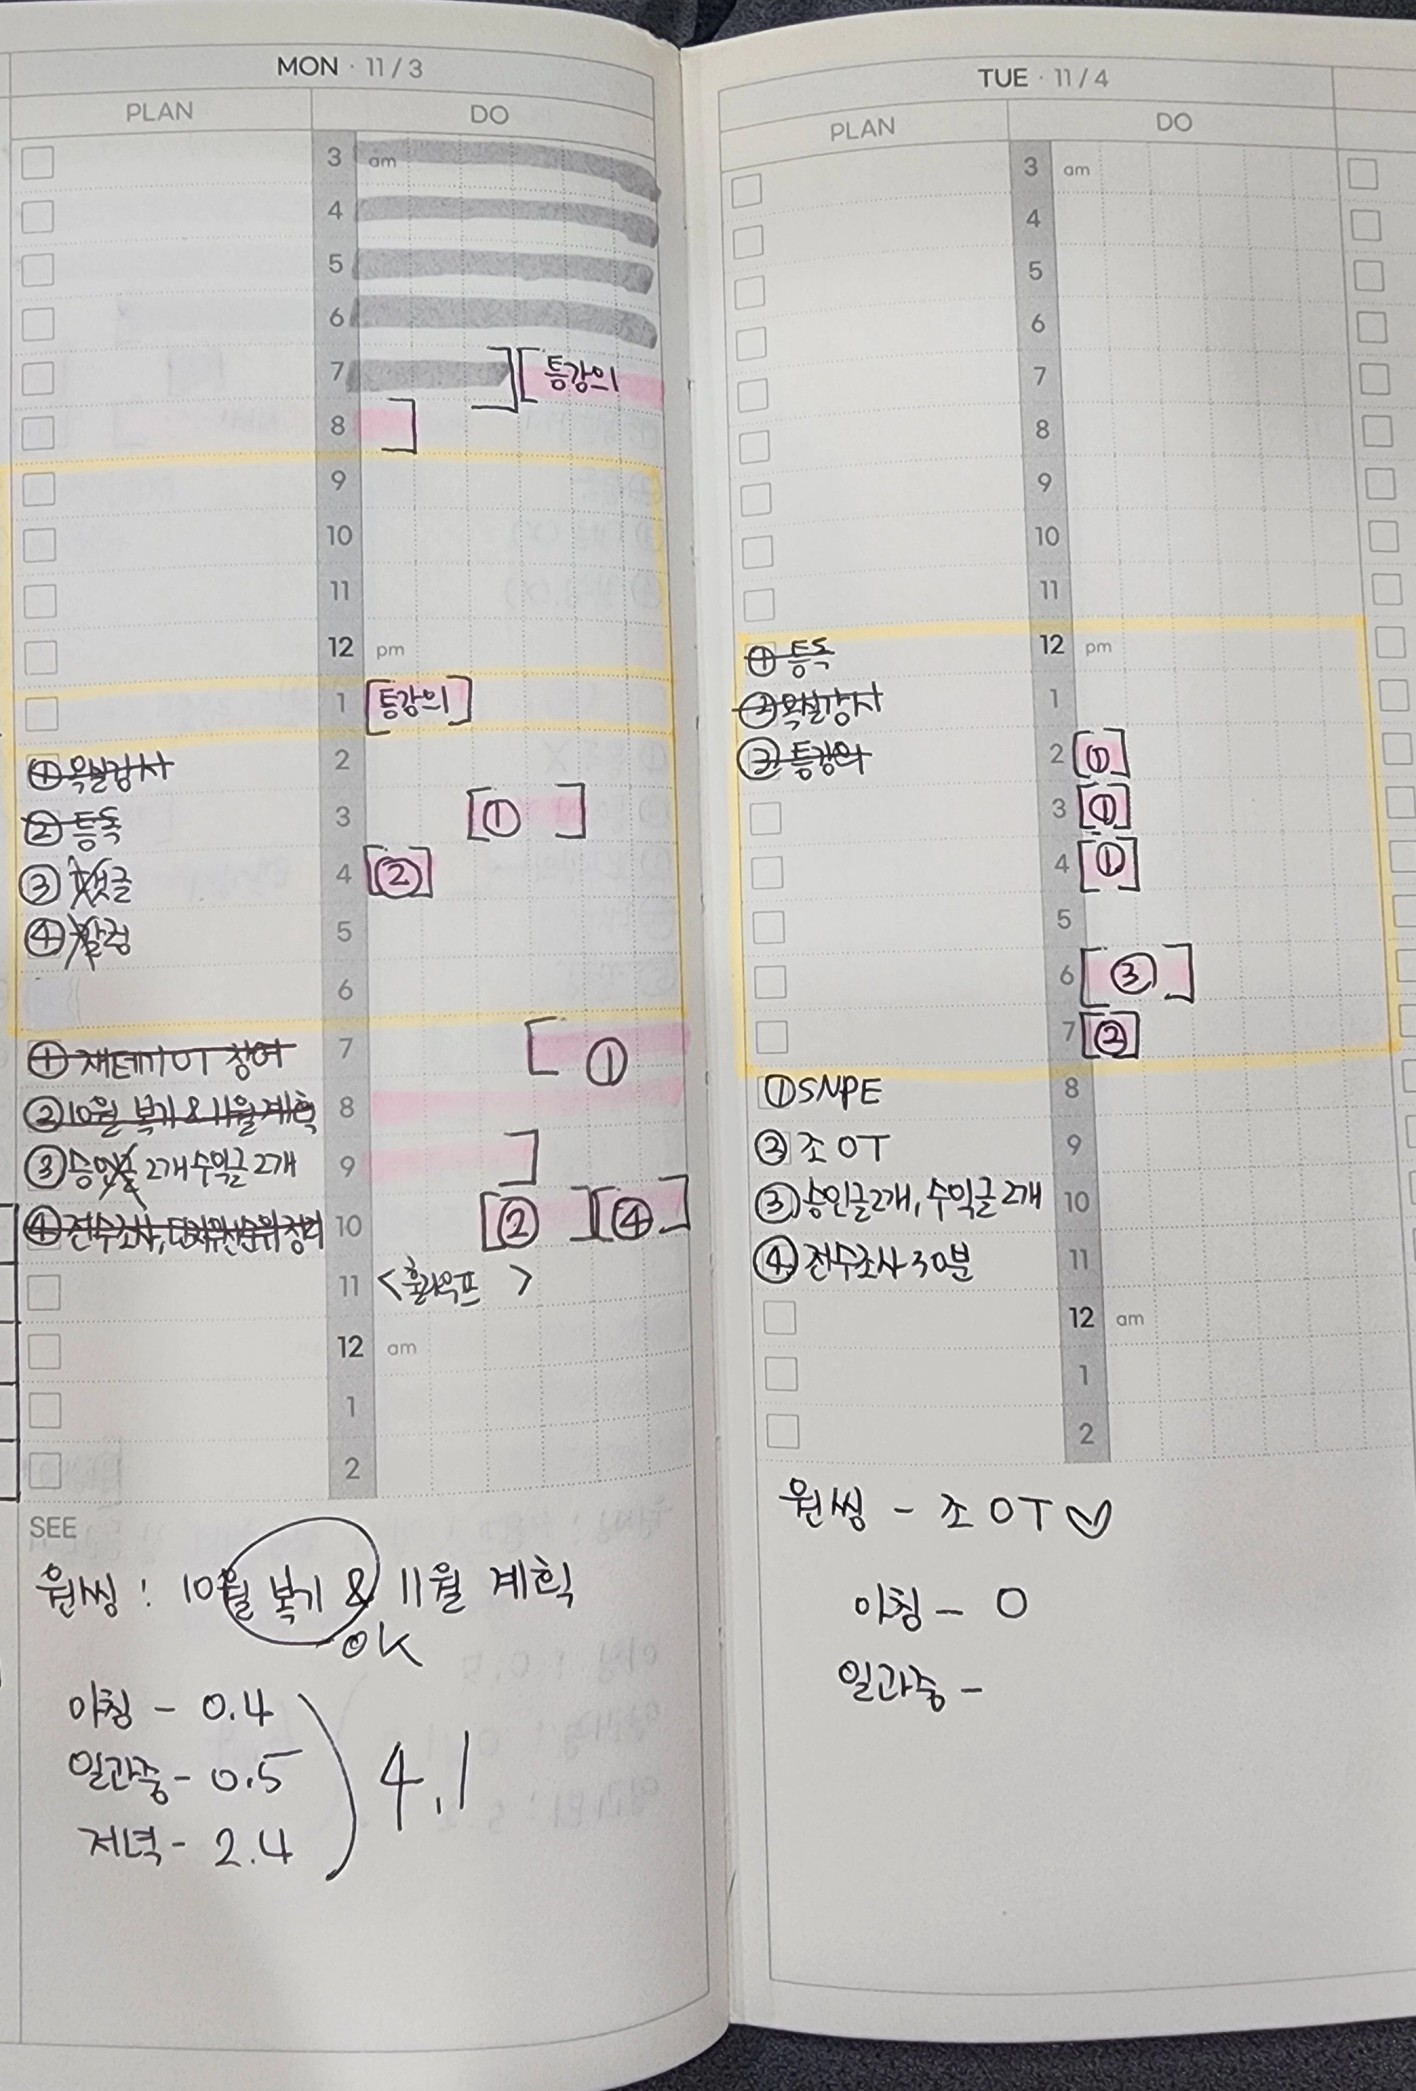 MON · 11/3
PLAN
DO
3 am
4
5
6
7 틈강의
8
9
10
11
12 pm
1 틈강의
① 목실감사 2
② 틈독 3 ①
③ 댓글 4 ②
④ 5
6
① 재테기 OT 참여 7 ①
② 10월 복기 & 11월 계획 8
③ 승인글 2개 수익글 2개 9
④ 전수조사, 단지우선순위 정리 10 ② ④
11 <홀라우프 >
12 am
1
2
SEE
원씽 : 10월 복기 & 11월 계획
OK
아침 - 0.4
일과중 - 0.5
저녁 - 2.4
4.1
TUE · 11/4
PLAN
DO
3 am
4
5
6
7
8
9
10
11
① 틈독 12 pm
② 목실감사 1
③ 틈강의 2 ①
3 ①
4 ①
5
6 ③
7 ②
① SNPE 8
② 조 OT 9
③ 승인글 2개, 수익글 2개 10
④ 전수조사 30분 11
12 am
1
2
원씽 - 조 OT ♡
아침 - 0
일과중 -